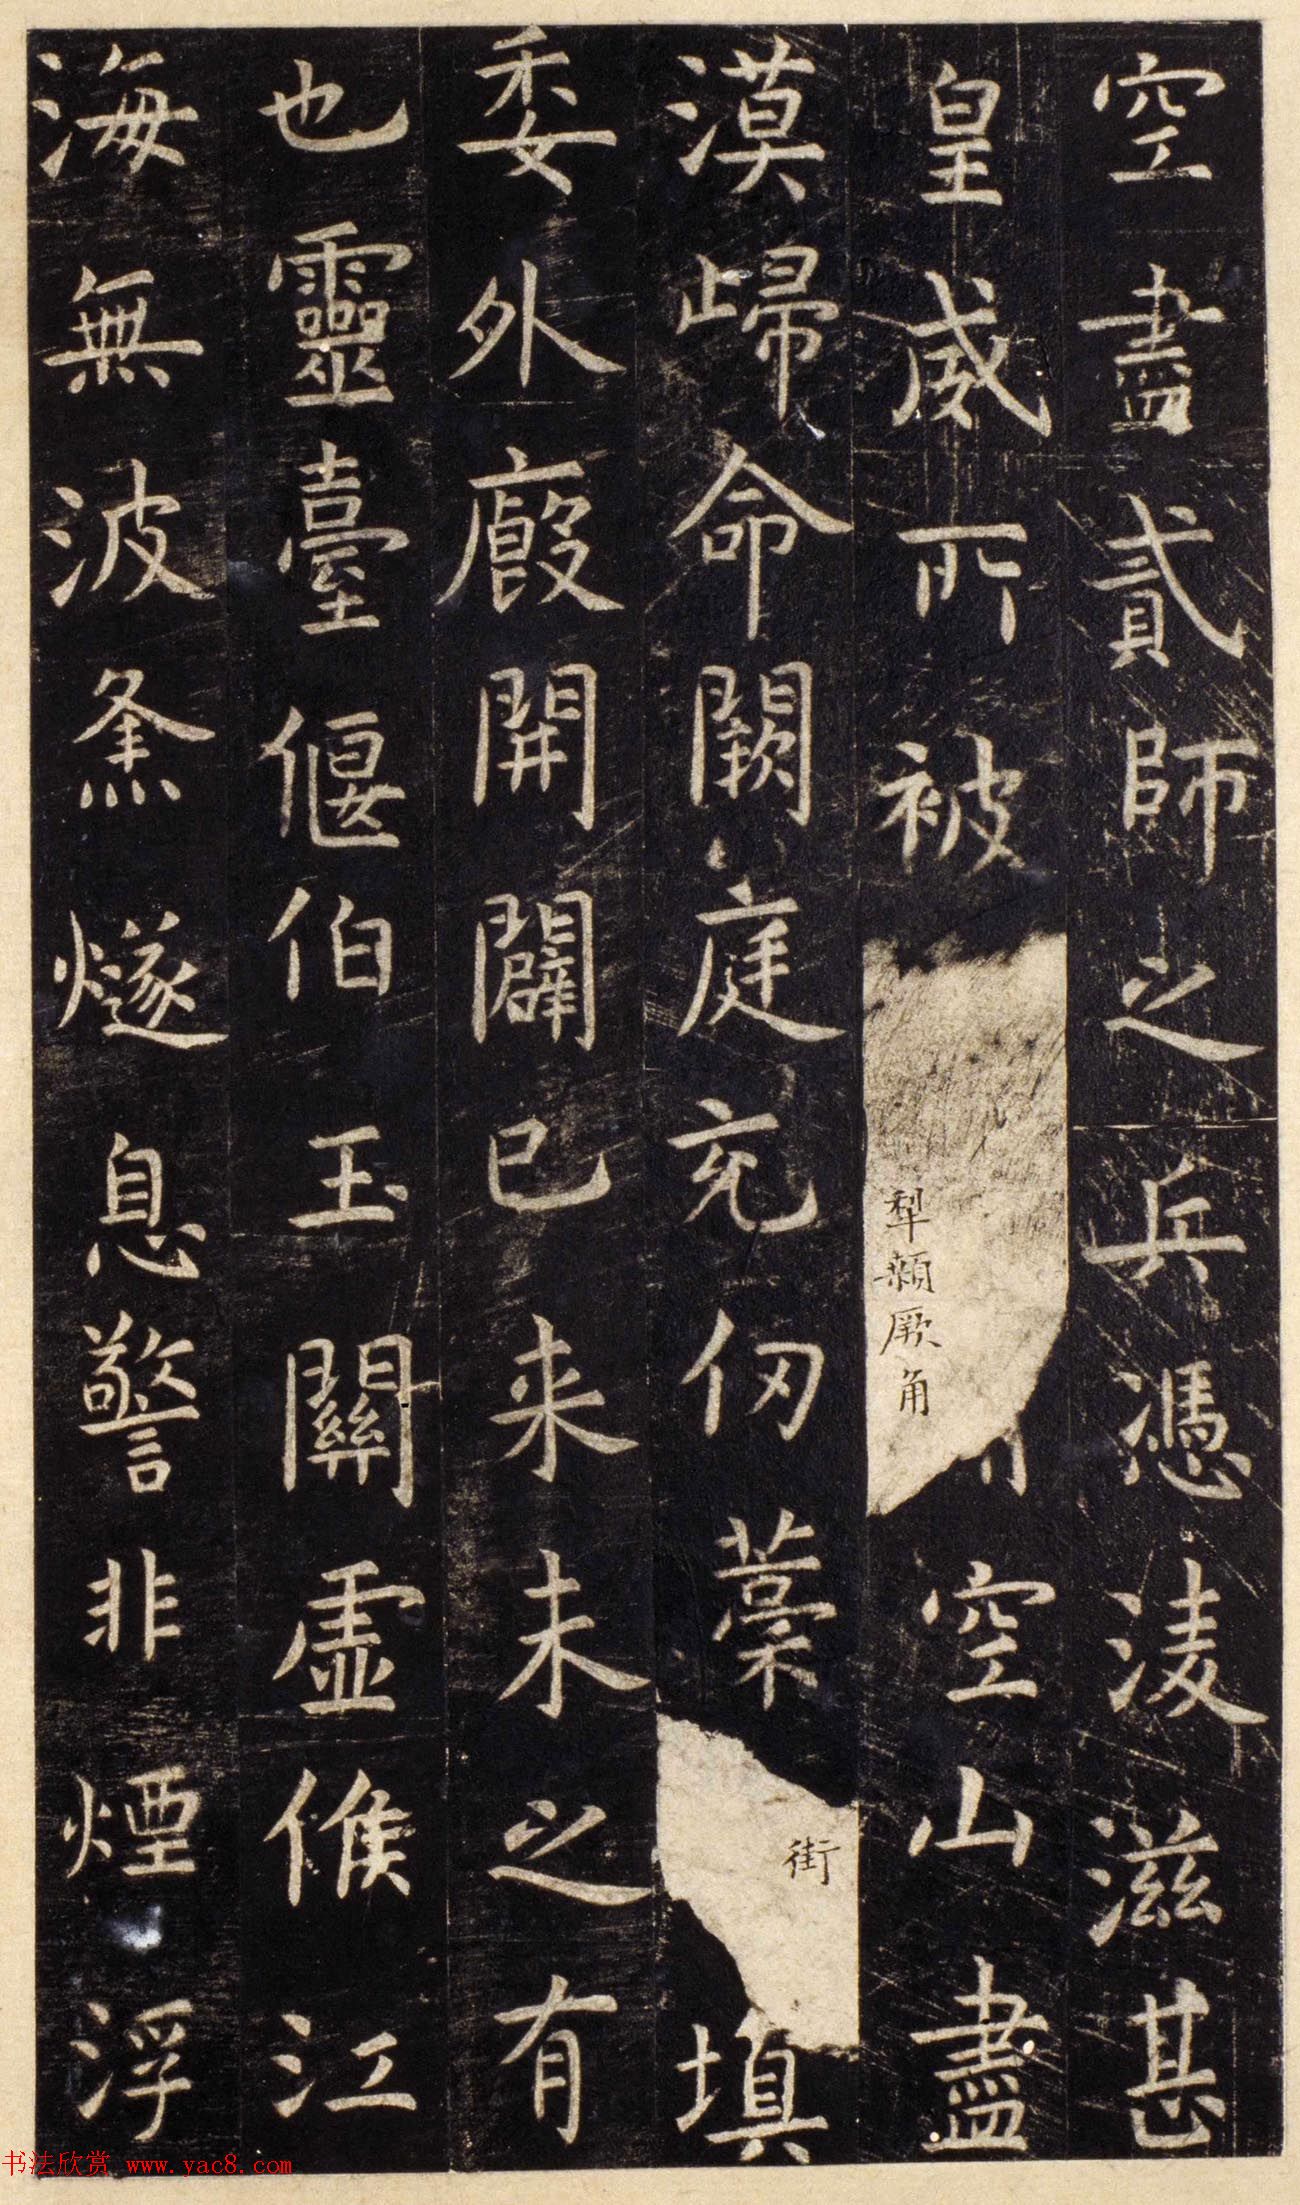 空盡貳師之兵憑淩滋甚
皇威所被犁顙厥角空山盡
漠歸命闕庭充仞藁街填
委外廄開闢已来未之有
也靈臺偃伯玉關虛候江
海無波㷭燧息警非煙浮
书法欣赏 www.yac8.com